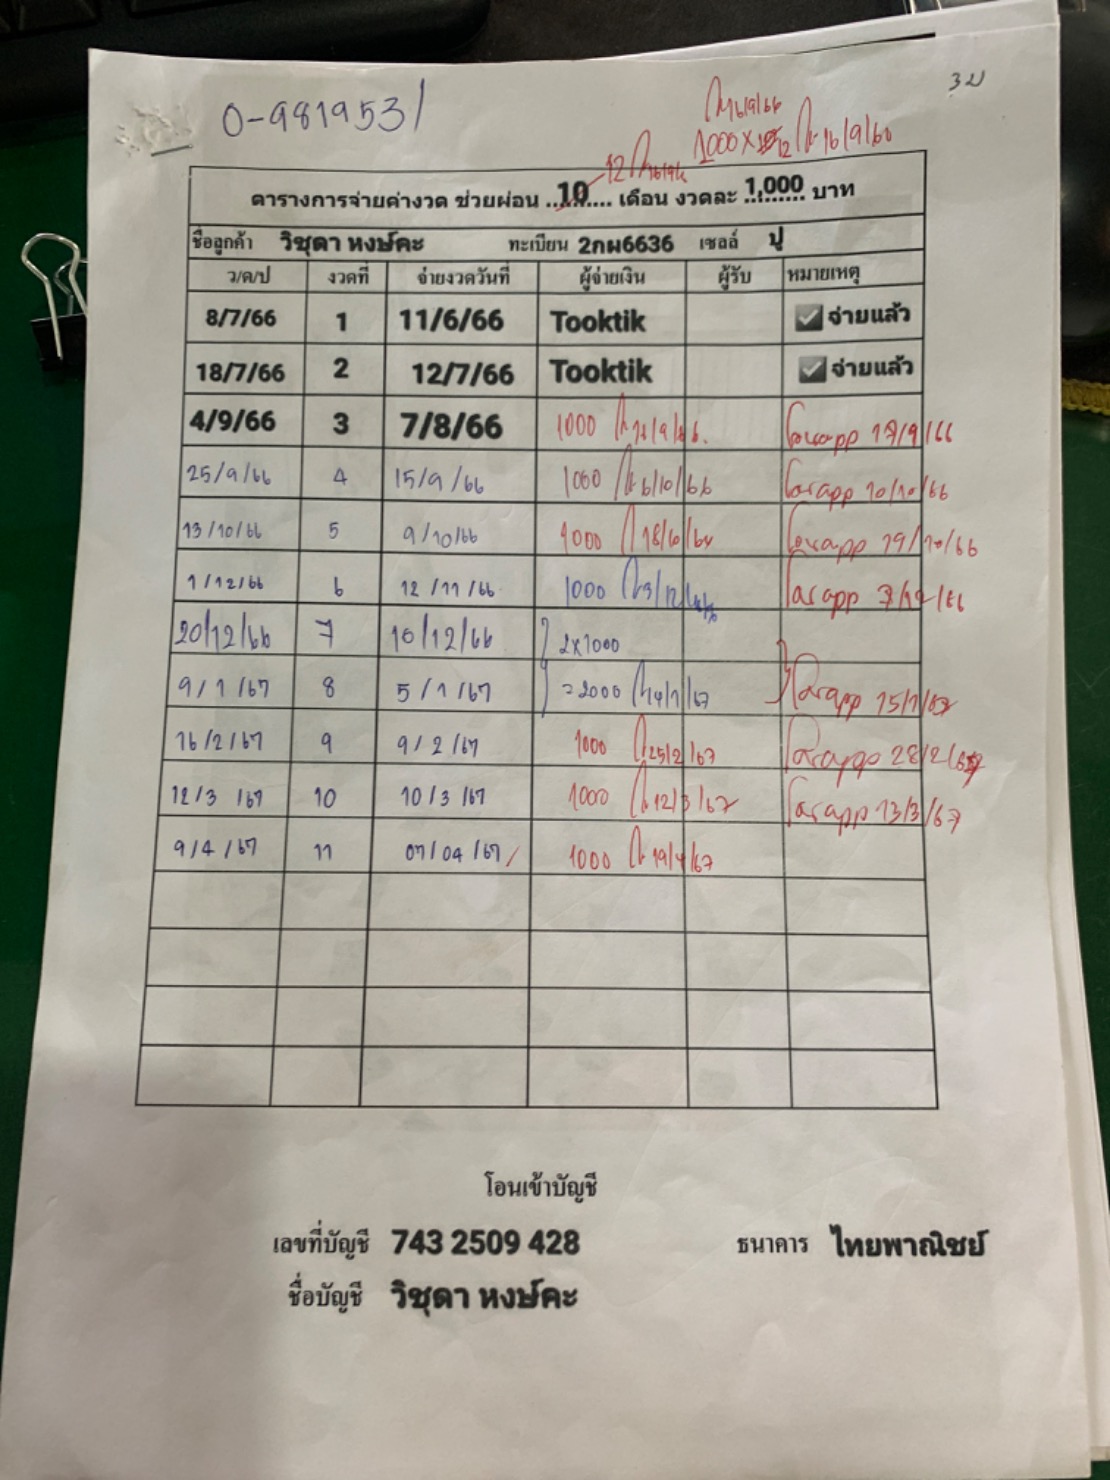 3ม
0-9819531
16/9/66
1000 x 12 16/9/66
12
ตารางการจ่ายค่างวด ช่วยผ่อน ...10... เดือน งวดละ 1,000 บาท
ชื่อลูกค้า วิชุดา หงษ์คะ ทะเบียน 2กผ6636 เซลล์ ปู
ว/ด/ป งวดที่ จ่ายงวดวันที่ ผู้จ่ายเงิน ผู้รับ หมายเหตุ
8/7/66 1 11/6/66 Tooktik ✅ จ่ายแล้ว
18/7/66 2 12/7/66 Tooktik ✅ จ่ายแล้ว
4/9/66 3 7/8/66 1000
25/9/66 4 15/9/66 1000 6/10/66 10/10/66
13/10/66 5 9/10/66 1000 19/10/66
1/12/66 6 12/11/66 1000
20/12/66 7 10/12/66 2x1000
9/1/67 8 5/1/67 = 2000 14/1/67 15/1/67
16/2/67 9 9/2/67 1000 25/2/67 28/2/67
12/3/67 10 10/3/67 1000 12/3/67 13/3/67
9/4/67 11 07/04/67 1000 19/4/67
โอนเข้าบัญชี
เลขที่บัญชี 743 2509 428 ธนาคาร ไทยพาณิชย์
ชื่อบัญชี วิชุดา หงษ์คะ